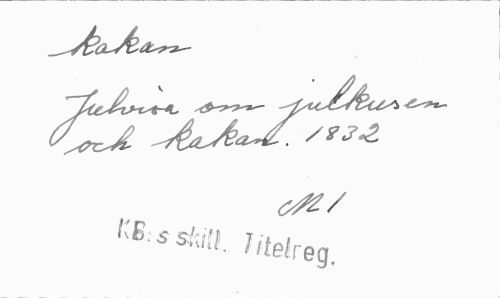 kakan
Julvisa om julkusen
och kakan. 1832
M 1
KB:s skill. Titelreg.